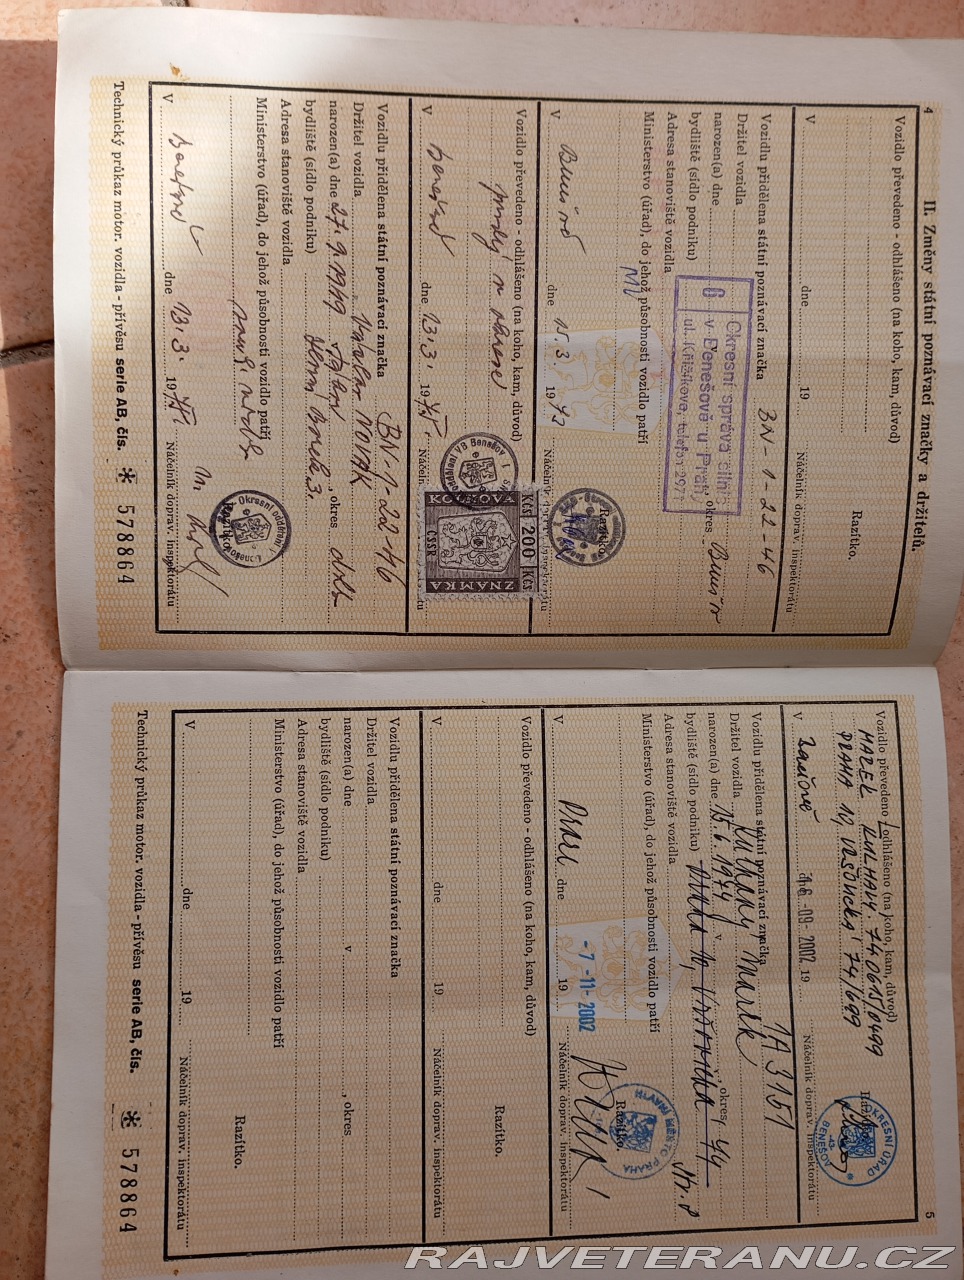 4
II. Změny státní poznávací značky a držitelů.
Vozidlo převedeno - odhlášeno (na koho, kam, důvod)
Razítko.
V dne 19 Náčelník doprav. inspektorátu
Vozidlu přidělena státní poznávací značka BN-1-22-46
Držitel vozidla
narozen(a) dne , okres
bydliště (sídlo podniku)
Adresa stanoviště vozidla
Ministerstvo (úřad), do jehož působnosti vozidlo patří
Okresní správa silnic
v Benešově u Prahy
6
ul. Křižíkova, telefon 2971
Razítko.
V dne 15.3. 1973 Náčelník doprav. inspektorátu
Vozidlo převedeno - odhlášeno (na koho, kam, důvod)
V dne 13.3. 19
KOLKOVÁ
Kčs 200 Kčs
ČSSR
ZNÁMKA
Vozidlu přidělena státní poznávací značka BN-1-22-46
Držitel vozidla NOVÁK
narozen(a) dne 27.9.1949 , okres
bydliště (sídlo podniku)
Adresa stanoviště vozidla
Ministerstvo (úřad), do jehož působnosti vozidlo patří
Razítko.
V dne 13.3. 19 Náčelník doprav. inspektorátu
Technický průkaz motor. vozidla - přívěsu serie AB, čís. * 578864
5
Vozidlo převedeno - odhlášeno (na koho, kam, důvod)
MAREK KULHAVÝ. 740615/0499
PRAHA 10, 74/699
OKRESNÍ ÚŘAD
-43-
BENEŠOV
V dne 16-09-2002 19 Náčelník doprav. inspektorátu
Vozidlu přidělena státní poznávací značka 1A3 151
Držitel vozidla Kulhavý Marek
narozen(a) dne 15.6.1974 v , okres
bydliště (sídlo podniku) Praha 10,
Adresa stanoviště vozidla
Ministerstvo (úřad), do jehož působnosti vozidlo patří
HLAVNÍ MĚSTO PRAHA
Razítko.
V dne -7-11-2002 19 Náčelník doprav. inspektorátu
Vozidlo převedeno - odhlášeno (na koho, kam, důvod)
Razítko.
V dne 19 Náčelník doprav. inspektorátu
Vozidlu přidělena státní poznávací značka
Držitel vozidla
narozen(a) dne v , okres
bydliště (sídlo podniku)
Adresa stanoviště vozidla
Ministerstvo (úřad), do jehož působnosti vozidlo patří
Razítko.
V dne 19 Náčelník doprav. inspektorátu
Technický průkaz motor. vozidla - přívěsu serie AB, čís. * 578864
RAJVETERANU.CZ